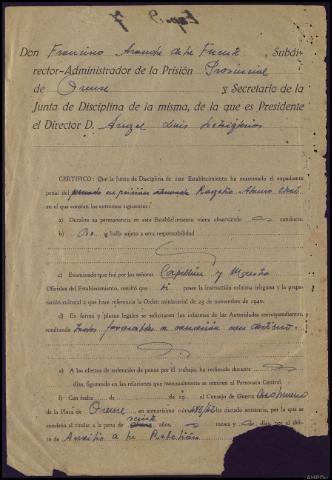 Don Francisco Aranda de la Fuente, Subdi-
rector-Administrador de la Prisión Provincial
de Orense y Secretario de la
Junta de Disciplina de la misma, de la que es Presidente
el Director D. Angel Luis
CERTIFICO: Que la Junta de Disciplina de este Establecimiento ha examinado el expediente
penal del penado en prisión atenuada Rogelio
en el que constan los extremos siguientes:
a) Durante su permanencia en este Establecimiento viene observando conducta.
b) No se halla sujeto a otra responsabilidad
c) Examinado que fué por los señores Capellán y Maestro
Oficiales del Establecimiento, resultó que si posee la instrucción mínima religiosa y la prepa-
ración cultural a que hace referencia la Orden ministerial de 23 de noviembre de 1940.
d) En forma y plazos legales se solicitaron los informes de las Autoridades correspondientes,
resultando todos favorables a concesión con destierro.
e) A los efectos de redención de penas por el trabajo, ha redimido durante
días, figurando en las relaciones que mensualmente se remiten al Patronato Central.
f) Con fecha de de 19 el Consejo de Guerra
de la Plaza de Orense en sumarísimo ha dictado sentencia, por la que se
condena al titular a la pena de veinte años, meses y días, por el deli-
to de Auxilio a la Rebelión